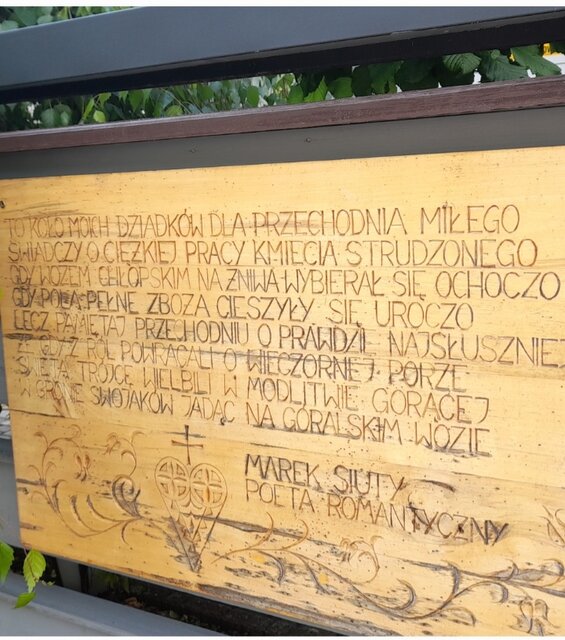 TO KOŁO MOICH DZIADKÓW DLA PRZECHODNIA MIŁEGO
ŚWIADCZY O CIĘŻKIEJ PRACY KMIECIA STRUDZONEGO
GDY WOZEM CHŁOPSKIM NA ŻNIWA WYBIERAŁ SIĘ OCHOCZO
GDY POLA PEŁNE ZBOŻA CIESZYŁY SIĘ UROCZO
LECZ PAMIĘTAJ PRZECHODNIU O PRAWDZIE NAJSŁUSZNIEJ
GDY Z RÓL POWRACALI O WIECZORNEJ PORZE
ŚWIĘTĄ TRÓJCĘ WIELBILI W MODLITWIE GORĄCEJ
W GRONIE SWOJAKÓW JADĄC NA GÓRALSKIM WOZIE
MAREK SIUTY
POETA ROMANTYCZNY